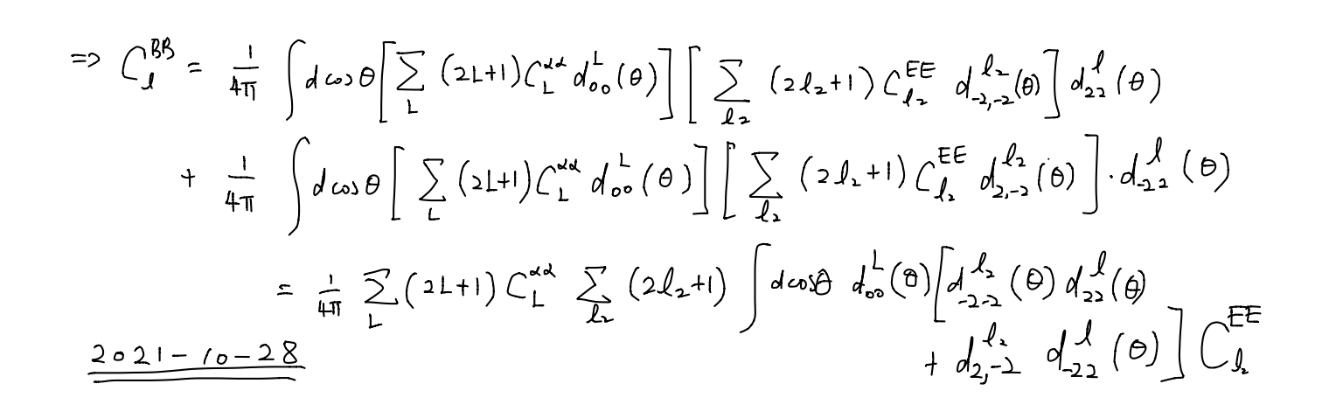 => C_l^{BB} = \frac{1}{4\pi} \int d cos θ [ \sum_L (2L+1) C_L^{αα} d_{00}^L (θ) ] [ \sum_{l_2} (2l_2+1) C_{l_2}^{EE} d_{-2,-2}^{l_2} (θ) ] d_{22}^l (θ)
+ \frac{1}{4\pi} \int d cos θ [ \sum_L (2L+1) C_L^{αα} d_{00}^L (θ) ] [ \sum_{l_2} (2l_2+1) C_{l_2}^{EE} d_{2,-2}^{l_2} (θ) ] · d_{-22}^l (θ)
= \frac{1}{4\pi} \sum_L (2L+1) C_L^{αα} \sum_{l_2} (2l_2+1) \int d cosθ d_{00}^L (θ) [ d_{-2-2}^{l_2} (θ) d_{22}^l (θ)
+ d_{2,-2}^{l_2} d_{-22}^l (θ) ] C_{l_2}^{EE}
2021-10-28